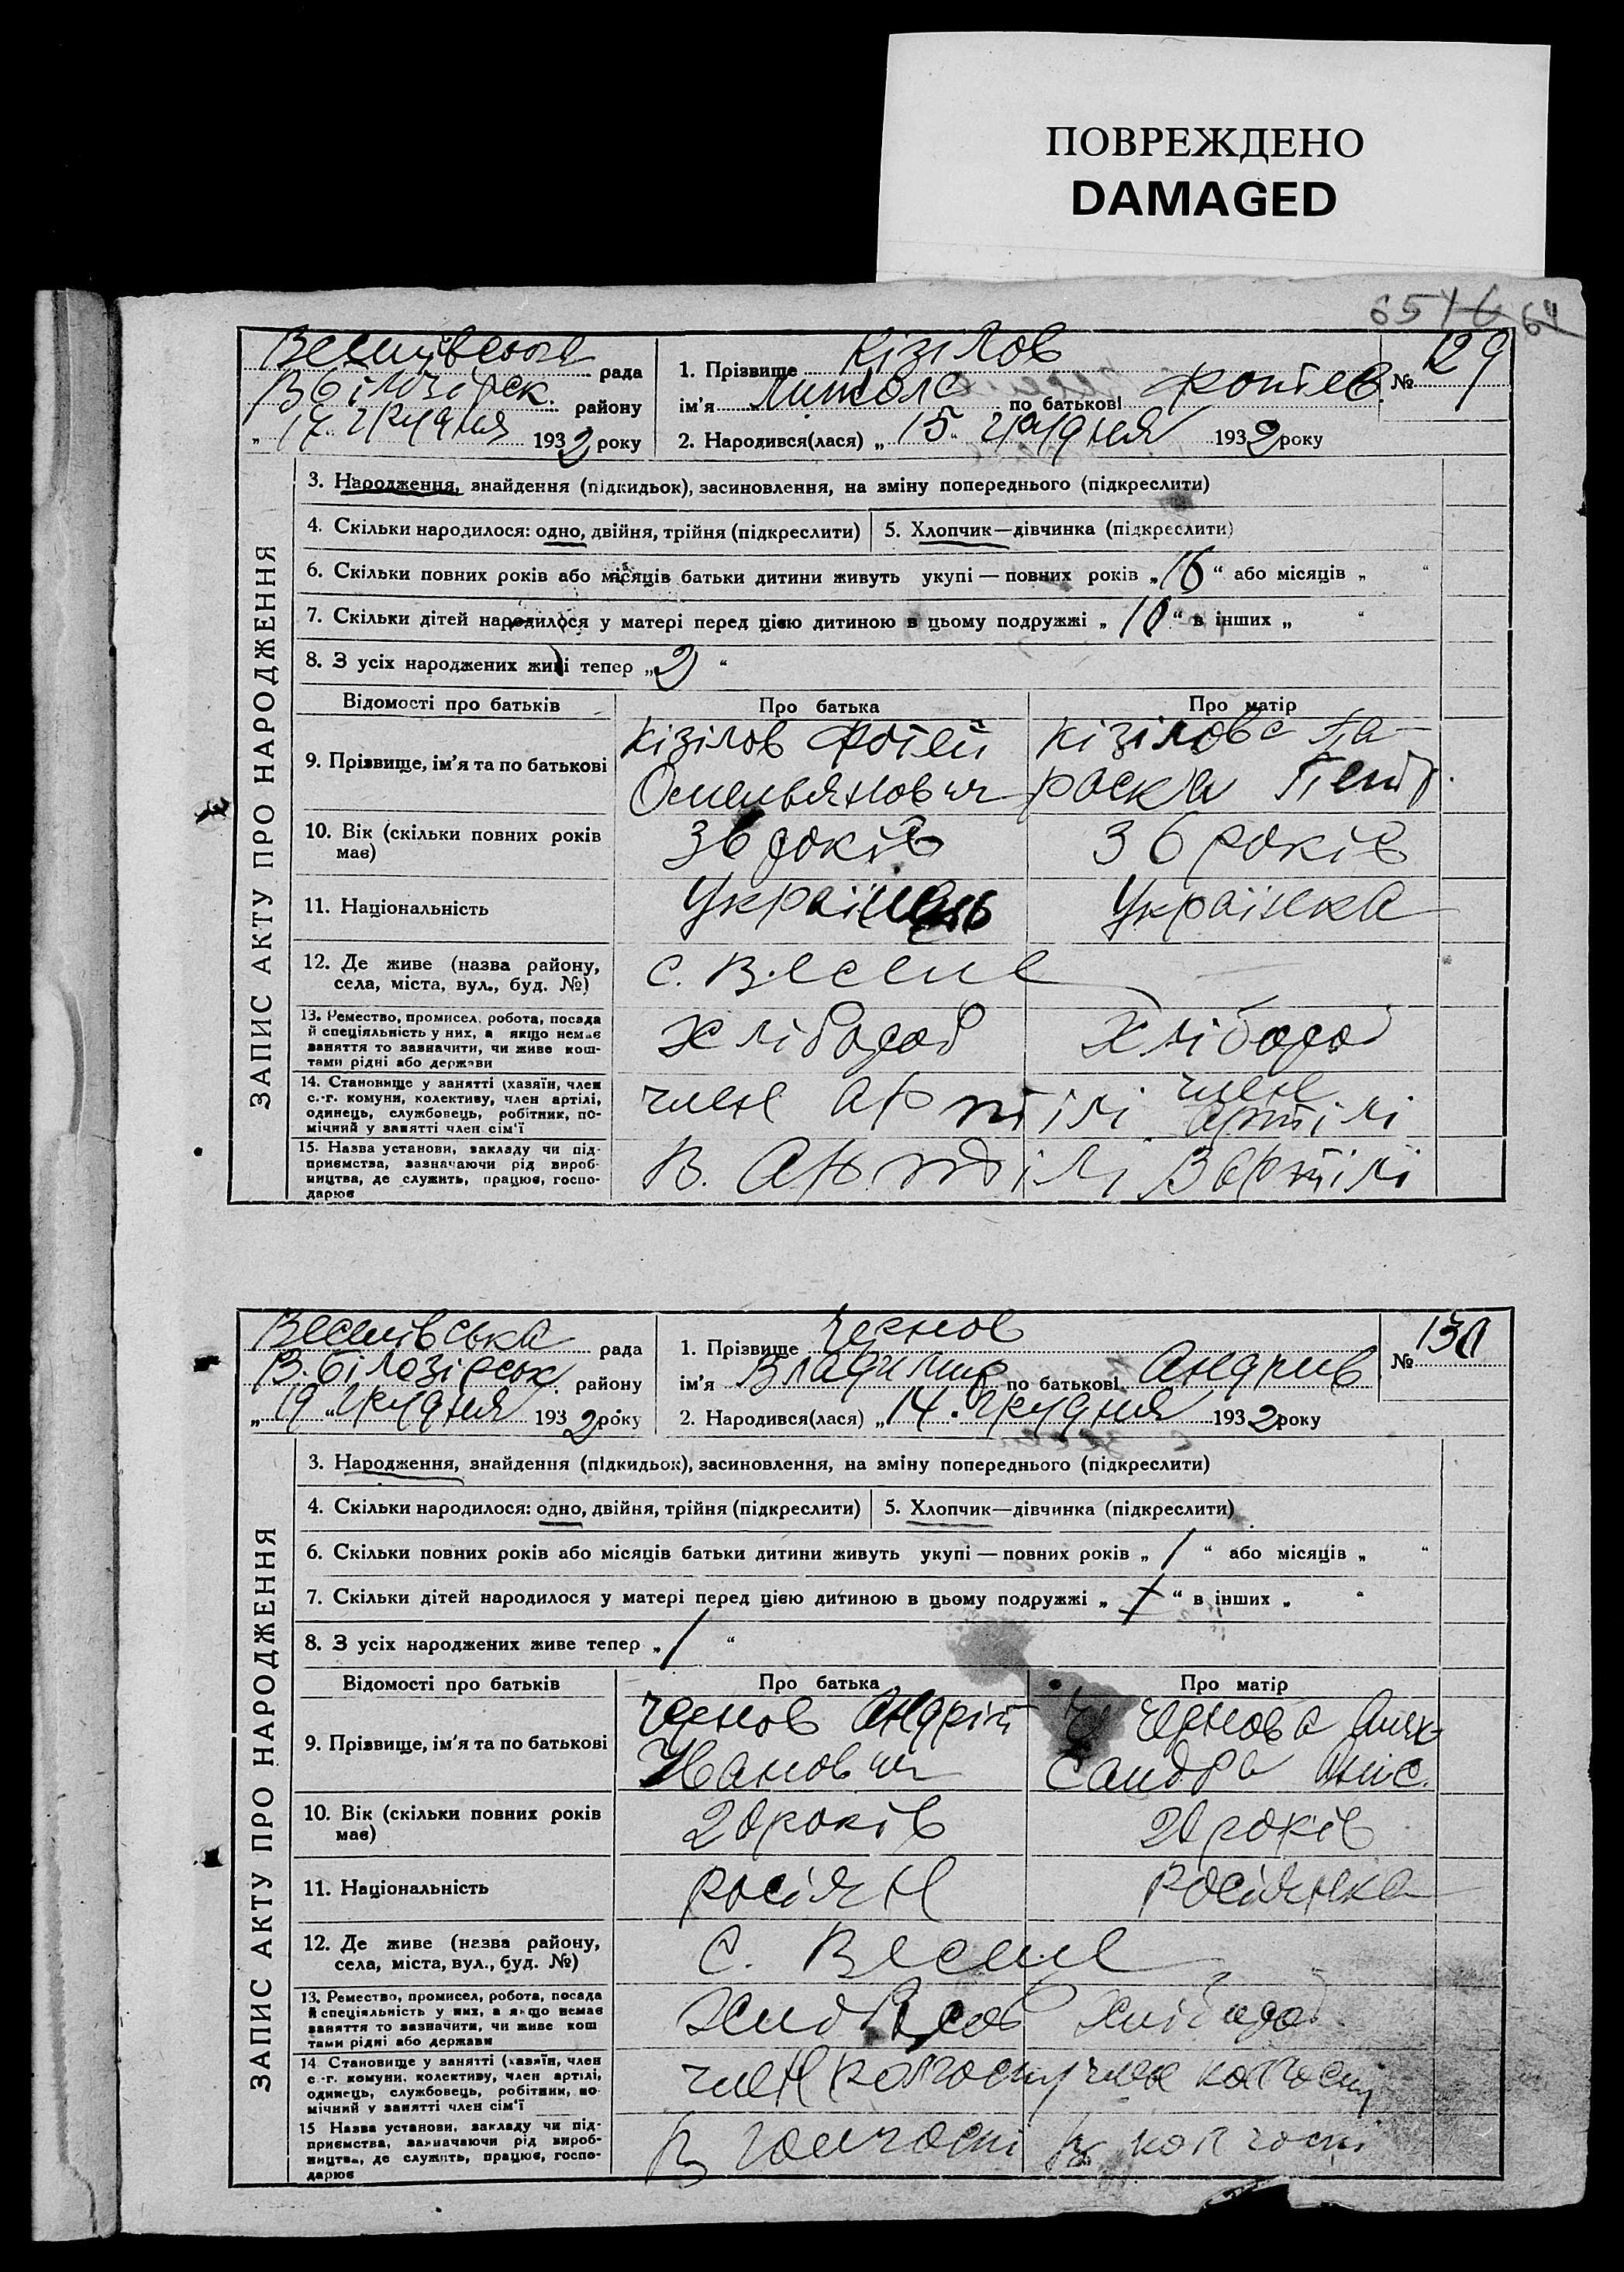 ПОВРЕЖДЕНО
DAMAGED
Веселівська рада
В білозірск. району
„ 17 грудня 1932 року
1. Прізвище Кізілов
ім’я Микола по батькові Фотіев.
№ 129
2. Народився(лася) „ 15 “ грудня 1932 року
ЗАПИС АКТУ ПРО НАРОДЖЕННЯ
3. Народження, знайдення (підкидьок), засиновлення, на зміну попереднього (підкреслити)
4. Скільки народилося: одно, двійня, трійня (підкреслити) 5. Хлопчик—дівчинка (підкреслити)
6. Скільки повних років або місяців батьки дитини живуть укупі — повних років „ 16 “ або місяців „ “
7. Скільки дітей народилося у матері перед цією дитиною в цьому подружжі „ 10 “ в інших „ “
8. З усіх народжених живі тепер „ 2 “
Відомості про батьків Про батька Про матір
9. Прізвище, ім’я та по батькові
Кізілов Фотій Кізілова Па-
Омельянович раска Петр.
10. Вік (скільки повних років має) 36 років 36 років
11. Національність Українець Українка
12. Де живе (назва району, села, міста, вул., буд. №) с. Веселе
13. Ремество, промисел, робота, посада й спеціяльність у них, а якщо немає заняття то зазначити, чи живе коштами рідні або держави Хлібороб Хлібороб
14. Становище у занятті (хазяїн, член с.-г. комуни, колективу, член артілі, одинець, службовець, робітник, помічний у занятті член сім’ї член артілі член артілі
15. Назва установи, закладу чи підприємства, зазначаючи рід виробництва, де служить, працює, господарює В. Артілі В артілі
Веселівська рада
В. білозірськ. району
„ 19 “ грудня 1932 року
1. Прізвище Чернов
ім’я Владимир по батькові Андриев
№ 130
2. Народився(лася) „ 14. грудня 1932 року
ЗАПИС АКТУ ПРО НАРОДЖЕННЯ
3. Народження, знайдення (підкидьок), засиновлення, на зміну попереднього (підкреслити)
4. Скільки народилося: одно, двійня, трійня (підкреслити) 5. Хлопчик—дівчинка (підкреслити)
6. Скільки повних років або місяців батьки дитини живуть укупі — повних років „ 1 “ або місяців „ “
7. Скільки дітей народилося у матері перед цією дитиною в цьому подружжі „ “ в інших „ “
8. З усіх народжених живе тепер „ 1 “
Відомості про батьків Про батька Про матір
9. Прізвище, ім’я та по батькові
Чернов Андрій Чернова Алек-
Иванович сандра
10. Вік (скільки повних років має) 20 років 20 років
11. Національність росіян Росіянка
12. Де живе (назва району, села, міста, вул., буд. №) С. Веселе
13. Ремество, промисел, робота, посада й спеціяльність у них, а якщо немає заняття то зазначити, чи живе коштами рідні або держави Хлібороб Хлібороб
14 Становище у занятті (хазяїн, член с.-г. комуни, колективу, член артілі, одинець, службовець, робітник, помічний у занятті член сім’ї член колгоспу член колгоспу
15 Назва установи, закладу чи підприємства, зазначаючи рід виробництва, де служить, працює, господарює В колгоспі В колгоспі